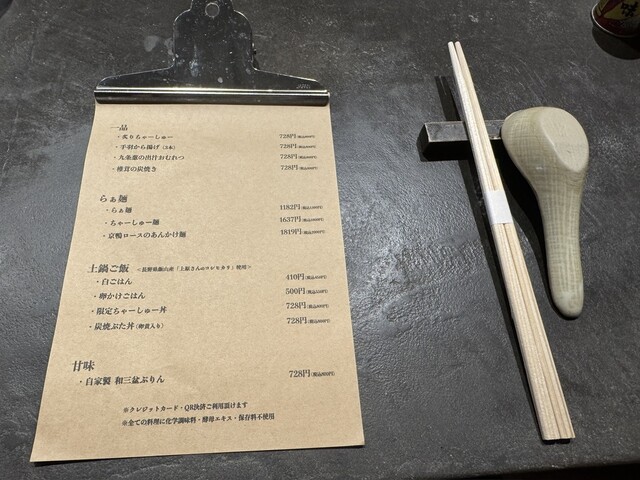 一品
・炙りちゃーしゅー 728円(税込800円)
・手羽から揚げ(2本) 728円(税込800円)
・九条葱の出汁おむれつ 728円(税込800円)
・椎茸の炭焼き 728円(税込800円)
らぁ麺
・らぁ麺 1182円(税込1300円)
・ちゃーしゅー麺 1637円(税込1800円)
・京鴨ロースのあんかけ麺 1819円(税込2000円)
土鍋ご飯 <長野県飯山産「上原さんのコシヒカリ」使用>
・白ごはん 410円(税込450円)
・卵かけごはん 500円(税込550円)
・限定ちゃーしゅー丼 728円(税込800円)
・炭焼ぶた丼(卵黄入り) 728円(税込800円)
甘味
・自家製 和三盆ぷりん 728円(税込800円)
※クレジットカード・QR決済ご利用頂けます
※全ての料理に化学調味料・酵母エキス・保存料不使用